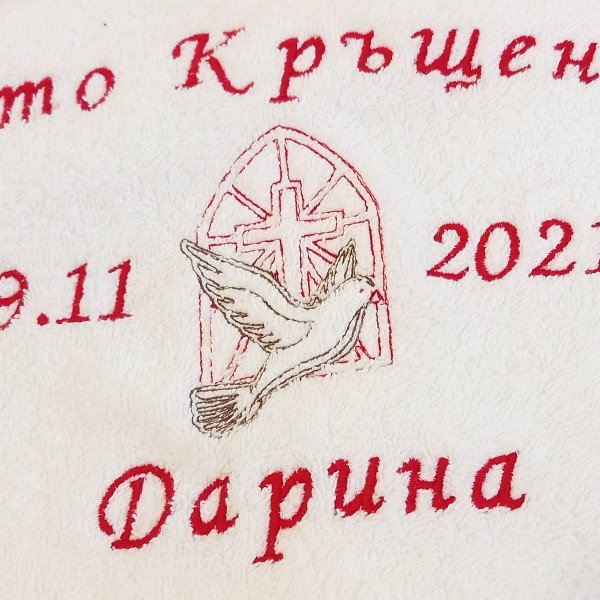 то Кръщен
9.11 2021
Дарина